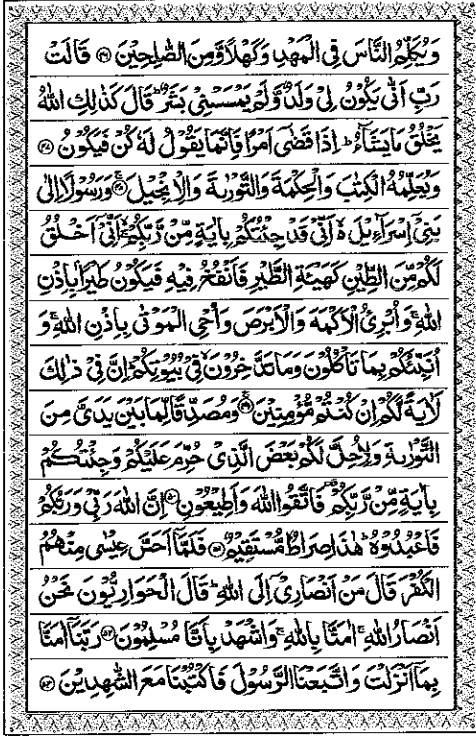 وَيُكَلِّمُ النَّاسَ فِي الْمَهْدِ وَكَهْلًا وَّمِنَ الصّٰلِحِيْنَ ۝۴۶ قَالَتْ
رَبِّ اَنّٰى يَكُوْنُ لِيْ وَلَدٌ وَّلَمْ يَمْسَسْنِيْ بَشَرٌ ؕ قَالَ كَذٰلِكِ اللّٰهُ
يَخْلُقُ مَا يَشَآءُ ؕ اِذَا قَضٰٓى اَمْرًا فَاِنَّمَا يَقُوْلُ لَهٗ كُنْ فَيَكُوْنُ ۝۴۷
وَيُعَلِّمُهُ الْكِتٰبَ وَالْحِكْمَةَ وَالتَّوْرٰىةَ وَالْاِنْجِيْلَ ۝۴۸ وَرَسُوْلًا اِلٰى
بَنِيْٓ اِسْرَآءِيْلَ ۙ۬ اَنِّيْ قَدْ جِئْتُكُمْ بِاٰيَةٍ مِّنْ رَّبِّكُمْ ۙ اَنِّيْٓ اَخْلُقُ
لَكُمْ مِّنَ الطِّيْنِ كَهَيْـَٔةِ الطَّيْرِ فَاَنْفُخُ فِيْهِ فَيَكُوْنُ طَيْرًۢا بِاِذْنِ
اللّٰهِ ۚ وَاُبْرِئُ الْاَكْمَهَ وَالْاَبْرَصَ وَاُحْيِ الْمَوْتٰى بِاِذْنِ اللّٰهِ ۚ وَ
اُنَبِّئُكُمْ بِمَا تَاْكُلُوْنَ وَمَا تَدَّخِرُوْنَ ۙ فِيْ بُيُوْتِكُمْ ؕ اِنَّ فِيْ ذٰلِكَ
لَاٰيَةً لَّكُمْ اِنْ كُنْتُمْ مُّؤْمِنِيْنَ ۝۴۹ وَمُصَدِّقًا لِّمَا بَيْنَ يَدَيَّ مِنَ
التَّوْرٰىةِ وَلِاُحِلَّ لَكُمْ بَعْضَ الَّذِيْ حُرِّمَ عَلَيْكُمْ وَجِئْتُكُمْ
بِاٰيَةٍ مِّنْ رَّبِّكُمْ ۫ فَاتَّقُوا اللّٰهَ وَاَطِيْعُوْنِ ۝۵۰ اِنَّ اللّٰهَ رَبِّيْ وَرَبُّكُمْ
فَاعْبُدُوْهُ ؕ هٰذَا صِرَاطٌ مُّسْتَقِيْمٌ ۝۵۱ فَلَمَّآ اَحَسَّ عِيْسٰى مِنْهُمُ
الْكُفْرَ قَالَ مَنْ اَنْصَارِيْٓ اِلَى اللّٰهِ ؕ قَالَ الْحَوَارِيُّوْنَ نَحْنُ
اَنْصَارُ اللّٰهِ ۚ اٰمَنَّا بِاللّٰهِ ۚ وَاشْهَدْ بِاَنَّا مُسْلِمُوْنَ ۝۵۲ رَبَّنَآ اٰمَنَّا
بِمَآ اَنْزَلْتَ وَاتَّبَعْنَا الرَّسُوْلَ فَاكْتُبْنَا مَعَ الشّٰهِدِيْنَ ۝۵۳